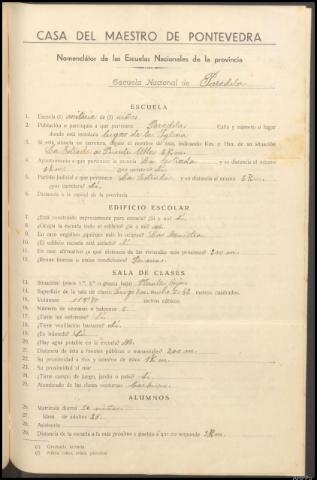 CASA DEL MAESTRO DE PONTEVEDRA
Nomenclátor de las Escuelas Nacionales de la provincia
Escuela Nacional de Paradela
ESCUELA
1. Escuela (1) unitaria de (2) niños.
2. Población o parroquia a que pertenece Paradela Calle y número o lugar
donde está instalada Lugar de la Iglesia
3. Si está situada en carretera, dígase el nombre de ésta, indicando Km. y Hm. de su situación
La Estrada a Puente Ulla
4. Ayuntamiento a que pertenece la escuela La Estrada y su distancia al mismo
5. Partido judicial a que pertenece La Estrada y su distancia al mismo
¿por carretera? Sí
6. Distancia a la capital de la provincia
EDIFICIO ESCOLAR
7. ¿Está construído expresamente para escuela? (Sí o no) Sí
8. ¿Ocupa la escuela todo el edificio? (Sí o no) no
9. En caso negativo ¿quiénes más lo ocupan? La Maestra
10. ¿El edificio escuela está aislado? Sí
11. En caso afirmativo ¿a qué distancia de las viviendas más próximas? 200 m.
12. ¿Reune buenas o malas condiciones?
SALA DE CLASES
13. Situación: (piso 1.º, 2.º o planta baja) Planta baja
14. Superficie de la sala de clases metros cuadrados.
15. Volúmen metros cúbicos.
16. Número de ventanas o balcones 5.
17. ¿Tiene luz suficiente? Sí
18. ¿Tiene ventilación bastante? Sí.
19. ¿Es húmeda? Sí
20. ¿Hay agua potable en la escuela? No.
21. Distancia de ésta a fuentes públicas o manantiales 200 m.
22. Su proximidad a ríos y nombre de éstos
23. Su proximidad al mar
24. ¿Tiene campo de juego, jardín o patio? Sí
25. Alumbrado de las clases nocturnas Carburo
ALUMNOS
26. Matrícula diurna 50 niños.
27. Idem de adultos 25.
28. Asistencia
29. Distancia de la escuela a la más próxima y pueblo a que corresponde
(1) Graduada, unitaria.
(2) Niños, niñas, mixta, párvulos.